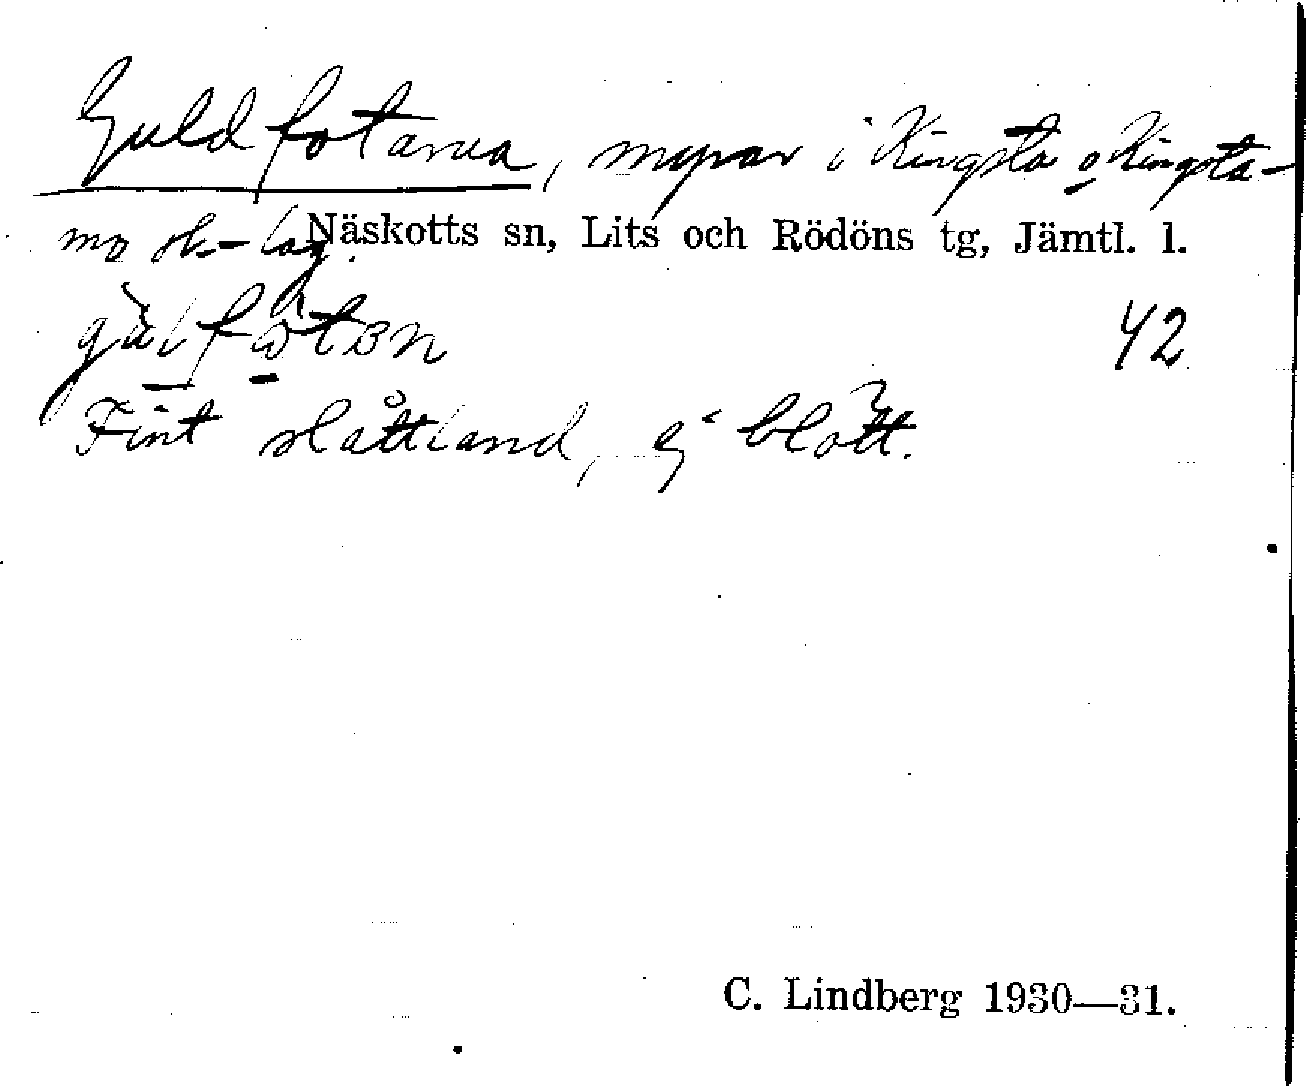 Guldfotarna, myrar i Kingsta o Kingsta-
mo sk-lag. Näskotts sn, Lits och Rödöns tg, Jämtl. l.
42
Fint slåttland, ej blött.
C. Lindberg 1930—31.